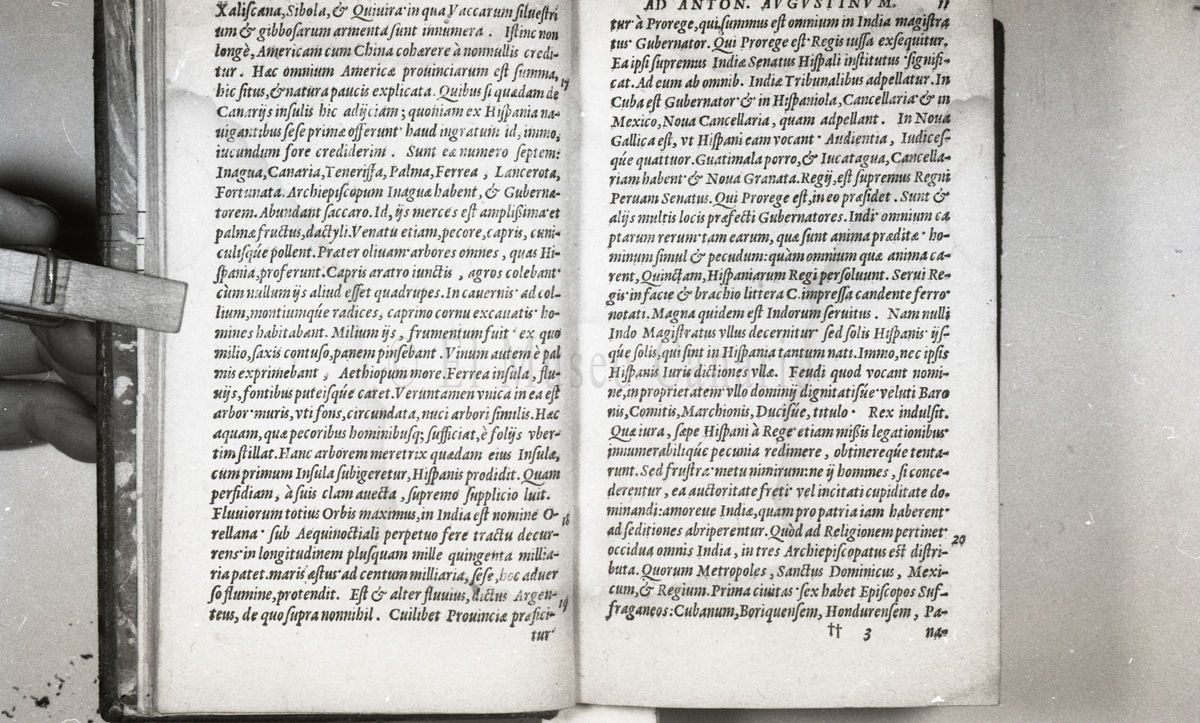 Xaliscana,Sibola,& Quiuira in qua Vaccarum siluestri
um & gibbosarum armenta sunt innumera . Istinc non
longè, Americam cum China cohærere à nonnullis credi-
tur . Hæc omnium Americæ prouinciarum est summa, 17
hic situs,& natura paucis explicata. Quibus si quædam de
Canarijs insulis hic adijciam ; quoniam ex Hispania na-
uigantibus sese primæ offerunt haud ingratum id, immo,
iucundum fore crediderim . Sunt eæ numero septem:
Inagua,Canaria,Teneriffa, Palma, Ferrea , Lancerota,
Fortunata. Archiepiscopum Inaguæ habent, & Guberna-
torem. Abundant saccaro. Id, ijs merces est amplißima et
palmæ fructus, dactyli. Venatu etiam, pecore, capris, cuni-
culisq́ue pollent. Præter oliuam arbores omnes , quas Hi-
spania, proferunt. Capris aratro iunctis , agros colebant
cùm nullum ijs aliud esset quadrupes. In cauernis ad col-
lium, montiumq́ue radices, caprino cornu excauatis ho-
mines habitabant. Milium ijs , frumentum fuit ex quo
milio, saxis contuso, panem pinsebant . Vinum autem è pal
mis exprimebant , Aethiopum more. Ferrea insula , flu-
uijs, fontibus puteisq́ue caret. Veruntamen vnica in ea est
arbor muris, vti fons, circundata, nuci arbori similis. Hæc
aquam, quæ pecoribus hominibusq; sufficiat, è folijs vber-
tim stillat. Hanc arborem meretrix quædam eius Insulæ,
cum primum Insula subigeretur, Hispanis prodidit. Quam
perfidiam , à suis clam auecta , supremo supplicio luit.
Fluuiorum totius Orbis maximus, in India est nomine O- 18
rellana sub Aequinoctiali perpetuo fere tractu decur-
rens in longitudinem plusquam mille quingenta millia-
ria patet. maris æstus ad centum milliaria, sese, hoc aduer
so flumine, protendit. Est & alter fluuius, dictus Argen- 19
teus, de quo supra nonnihil . Cuilibet Prouinciæ præfici-
tur
AD ANTON. AVGVSTINVM. 11
tur à Prorege, qui summus est omnium in India magistra
tus Gubernator. Qui Prorege est Regis iussa exsequitur.
Ea ipsi supremus Indiæ Senatus Hispali institutus signifi-
cat. Ad eum ab omnib. Indiæ Tribunalibus adpellatur. In
Cuba est Gubernator & in Hispaniola, Cancellaria & in
Mexico, Noua Cancellaria , quam adpellant . In Noua
Gallica est, vt Hispani eam vocant Audientia , Iudices-
q́ue quattuor. Guatimala porro, & Iucatagua, Cancella-
riam habent & Noua Granata. Regij, est supremus Regni
Peruani Senatus. Qui Prorege est, in eo præsidet . Sunt &
alijs multis locis præfecti Gubernatores. Indi omnium ca
ptarum rerum tam earum, quæ sunt anima præditæ ho-
minum simul & pecudum: quàm omnium quæ anima ca-
rent, Quinctam, Hispaniarum Regi persoluunt. Serui Re-
gis in facie & brachio littera C. impressa candente ferro
notati. Magna quidem est Indorum seruitus . Nam nulli
Indo Magistratus vllus decernitur sed solis Hispanis ijs-
q́ue solis, qui sint in Hispania tantum nati. Immo, nec ipsis
Hispanis Iuris dictiones vllæ . Feudi quod vocant nomi-
ne, in proprietatem vllo dominij dignitatisúe veluti Baro
nis, Comitis, Marchionis, Ducisúe, titulo Rex indulsit.
Quæ iura , sæpe Hispani à Rege etiam mißis legationibus
innumerabiliq́ue pecunia redimere , obtinereq́ue tenta-
runt. Sed frustra metu nimirum: ne ij homines , si conce-
derentur , ea auctoritate freti vel incitati cupiditate do-
minandi: amoreue Indiæ, quam pro patria iam haberent
ad seditiones abriperentur. Quòd ad Religionem pertinet 20
occidua omnis India , in tres Archiepiscopatus est distri-
buta. Quorum Metropoles , Sanctus Dominicus , Mexi-
cum, & Regium. Prima ciuitas sex habet Episcopos Suf-
fraganeos: Cubanum, Boriquensem, Hondurensem , Pa-
†† 3 na-
© El Museo Canario